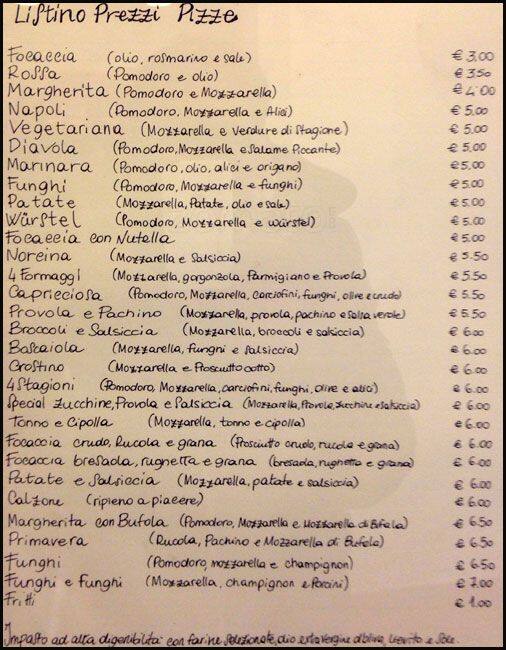 Listino Prezzi Pizze
Focaccia (olio, rosmarino e sale) € 3.00
Rossa (Pomodoro e olio) € 3.50
Margherita (Pomodoro e Mozzarella) € 4.00
Napoli (Pomodoro, Mozzarella e Alici) € 5.00
Vegetariana (Mozzarella e Verdure di Stagione) € 5.00
Diavola (Pomodoro, Mozzarella e Salame Piccante) € 5.00
Marinara (Pomodoro, olio, alici e origano) € 5.00
Funghi (Pomodoro, Mozzarella e funghi) € 5.00
Patate (Mozzarella, Patate, olio e sale) € 5.00
Würstel (Pomodoro, Mozzarella e würstel) € 5.00
Focaccia con Nutella € 5.00
Norcina (Mozzarella e Salsiccia) € 5.50
4 Formaggi (Mozzarella, gorgonzola, Parmigiano e Provola) € 5.50
Capricciosa (Pomodoro, Mozzarella, carciofini, funghi, olive e crudo) € 5.50
Provola e Pachino (Mozzarella, provola, pachino e salsa verde) € 5.50
Broccoli e Salsiccia (Mozzarella, broccoli e salsiccia) € 6.00
Boscaiola (Mozzarella, funghi e salsiccia) € 6.00
Crostino (Mozzarella e Prosciutto cotto) € 6.00
4 Stagioni (Pomodoro, Mozzarella, carciofini, funghi, olive e alici) € 6.00
Special Zucchine, Provola e Salsiccia (Mozzarella, Provola, zucchine e salsiccia) € 6.00
Tonno e Cipolla (Mozzarella, tonno e cipolla) € 6.00
Focaccia crudo, Rucola e grana (Prosciutto crudo, rucola e grana) € 6.00
Focaccia bresaola, rughetta e grana (bresaola, rughetta e grana) € 6.00
Patate e Salsiccia (Mozzarella, patate e salsiccia) € 6.00
Calzone (ripieno a piacere) € 6.00
Margherita con Bufola (Pomodoro, Mozzarella e Mozzarella di Bufala) € 6.50
Primavera (Rucola, Pachino e Mozzarella di Bufola) € 6.50
Funghi (Pomodoro, mozzarella e champignon) € 6.50
Funghi e funghi (Mozzarella, champignon e Porcini) € 7.00
Fritti € 1.00
Impasto ad alta digeribilità con farine selezionate, olio extravergine d'oliva, lievito e sale.